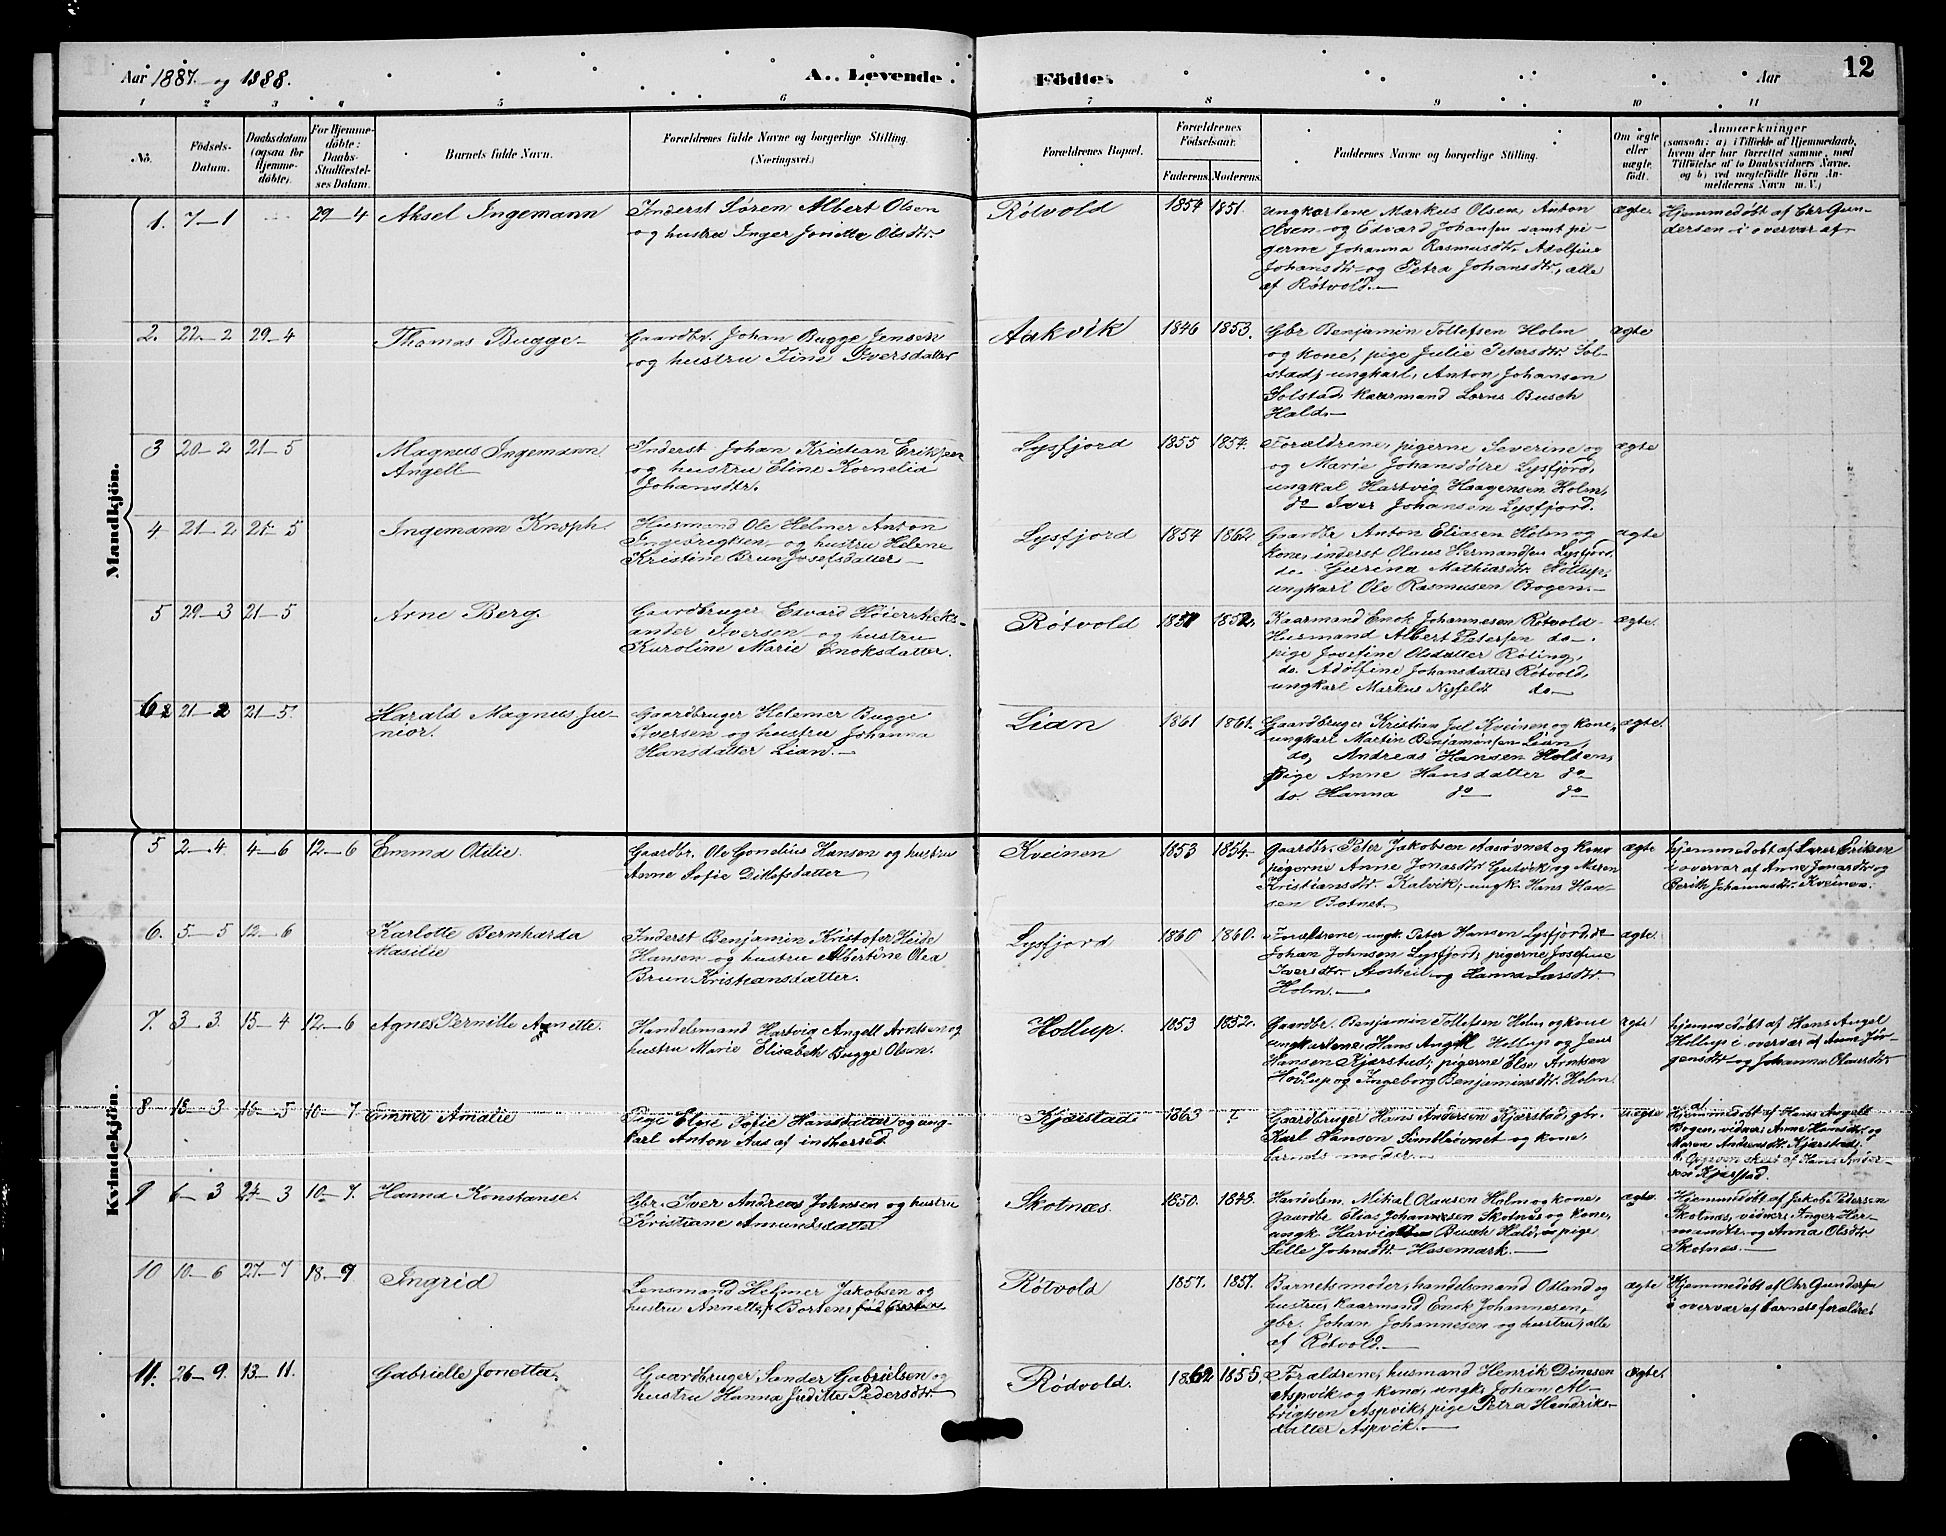 Aar 1887. og 1888.
A. Levende
Födte.
Aar
12
1 2 3 4 5 6 7 8 9 10 11
No.
Födsels-
Datum.
Daabsdatum
(ogsaa for
Hjemme-
döbte).
For Hjemme-
döbte:
Daabs-
Stadfæstel-
ses Datum.
Barnets fulde Navn.
Forældrenes fulde Navne og borgerlige Stilling.
(Næringsvei.)
Forældrenes Bopæl.
Forældrenes
Födselsaar.
Faderens. Moderens.
Faddernes Navne og borgerlige Stilling.
Om ægte
eller
uægte
födt.
Anmærkninger
(saasom: a) i Tilfælde af Hjemmedaab,
hvem der har forrettet samme, med
Tilföielse af to Daabsvidners Navne.
og b) ved uægtefödte Börn An-
melderens Navn m. V.)
Mandkjön.
1. 7-1 29-4
Aksel Ingemann
Inderst Søren Albert Olsen
og hustru Inger Jonette Olsdtr.
Rötvold
1854 1851.
ungkarlene Markus Olsen, Anton
Olsen og Edvard Johansen samt pi-
gerne Johanna Rasmusdtr. Adolfine
Johansdtr og Petra Johansdtr, alle
af Rötvold.
ægte.
Hjemmedöbt af Chr Gun-
dersen i overvær af
2. 22-2 29-4
Thomas Bugge
Gaardbr. Johan Bugge Jensen
og hustru Tine Iversdatter
Aakvik
1846 1853.
Gbr Benjamin Tollefsen Holm
og kone, pige Julie Petersdtr. Sol-
stad, ungkarl, Anton Johansen
Solstad, kaarmand Lorns Busch
Hald.
ægte
3 20-2 21-5
Magnus Ingemann
Angell
Inderst Johan Kristian Eriksen
og hustru Eline Kornelia
Johansdtr.
Lysfjord
1855 1854.
Forældrene, pigerne Severine og
og Marie Johansdötre Lysfjord,
ungkal Hartvig Haagensen Holm,
do Iver Johansen Lysfjord.
ægte
4 21-2 21-5
Ingemann Knoph.
Husmand Ole Helmer Anton
Ingebrigtsen og hustru Helene
Kristine Brun Josefsdatter
Lysfjord
1854 1862
Gaardbr Anton Eliasen Holm og
kone, inderst Olaus Hermandsen Lysfjord.
do. Gjurina Mathiasdtr. Hollup,
ungkarl Ole Rasmusen Bogen.
ægte
5 29-3 21-5
Arne Berg.
Gaardbruger Edvard Höier Aleks-
ander Iversen og hustru
Karoline Marie Enoksdatter.
Rötvold
1857 1852.
Kaarmand Enok Johannesen Rötvold
Husmand Albert Petersen do.
pige Josefine Olsdatter Röting,
do. Adolfine Johansdatter Rötvold,
ungkarl Markus Nyfeldt do
ægte.
6 21-2 21-5
Harald Magnus Ju-
nior.
Gaardbruger Helemer Bugge
Iversen og hustru Johanna
Hansdatter Lian.
Lian
1861 1861.
Gaardbruger Kristian Jul Kveinen og kone,
ungkarl Martin Benjaminsen Lian,
do, Andreas Hansen Holden,
pige Anne Hansdatter do
do. Hanna do do
ægte.
Kvindekjön.
5 2-4. 4-6 12-6
Emma Otilie.
Gaardbr. Ole Gondius Hansen og hustru
Anne Sofie Ditlefsdatter
Kveinen
1853 1854.
Gaardbr. Peter Jakobsen Aasövnet og kone
pigerne Anne Jonasdtr Gutvik og Maren
Kristiansdtr. Kalvik, ungk. Hans Han-
sen Botnet.
ægte
hjemmedöbt af Lars Eriksen
i overvær af Anne Jonasdtr og
Berith Johannesdtr. Kveinen.
6. 5-5 12-6
Karlotte Bernharda
Masilie
Inderst Benjamin Kristofer Heide
Hansen og hustru Albertine Olea
Brun Kristiansdatter.
Lysfjord
1860 1860.
Forældrene, ungk. Peter Hansen Lysfjord, do
Johan Johnsen Lysfjord, pigerne Josefine
Iversdtr. Aarheil og Hanna Larsdtr.
Holm.
ægte.
7. 3-3. 15-4 12-6
Agnes Pernille Annette.
Handelsmand Hartvig Angell Arntsen og
hustru Marie Elisabeth Bugge Olsen.
Hollup.
1853 1852.
Gaardbr. Benjamin Tollefsen Holm og kone
ungkarlene Hans Angell Hollup og Jens
Hansen Kjærstad, pigerne Else Arntsen
Hollup og Ingeborg Benjaminsdtr. Holm.
ægte
hjemmedöbt af Hans Angel
Hollup i overvær af Anne Jör-
gensdtr og Johanna Olausdtr
8 13-3 16-5 10-7
Emma Amalie
Pige Else Sofie Hansdatter og ung-
karl Anton Aas af indherred
Kjærstad
1863 ?
Gaardbruger Hans Andersen Kjærstad, gbr.
Karl Hansen Simlebövnet og kone,
barnets moder.
uægte
a) Hjemmedöbt af Hans Angell
Bogen, vidner: Anne Hansdtr og
Maren Andreasdtr. Kjærstad.
b. Opgiven skest af Hans Ander-
sen Kjærstad.
9 6-3 24-3 10-7.
Hanna Konstanse.
Gbr. Iver Andreas Johnsen og hustru
Kristiane Amundsdatter
Skotnæs.
1850. 1843.
Handelsm. Mikal Olausen Holm og kone,
Gaardbr Elias Johannesen Skotnæs og kone,
ungk Harvig Busch Hald, pige
Pelle Johnsdtr. Hasemark.
ægte.
Hjemmedöbt af Jakob Pedersen
Skotnæs, vidner: Inger Her-
mandtr. og Anna Olsdtr
Skotnæs.
10 10-6 27-7 18-9
Ingrid
Lensmand Helmer Jakobsen og
hustru Annette, f. Borten,
Rötvold
1857. 1857.
Barnets moder, handelsmand Odland og
hustru, kaarmand Enok Johannesen,
gbr. Johan Johannesen og hustru, alle
af Rötvold.
ægte
Hjemmedöbt af Chr Gundersen
i overvær af barnets forældre.
11. 26-9. 13-11.
Gabrielle Jonetta.
Gaardbruger Sander Gabrielsen og
hustru Hanna Juditte Pedersdtr.
Rödvold.
1862 1855.
Forældrene, husmand Henrik Dinesen
Aspvik og kone, ungk. Johan Al-
brigtsen Aspvik, pige Petra Hendriks-
datter Aspvik.
ægte.